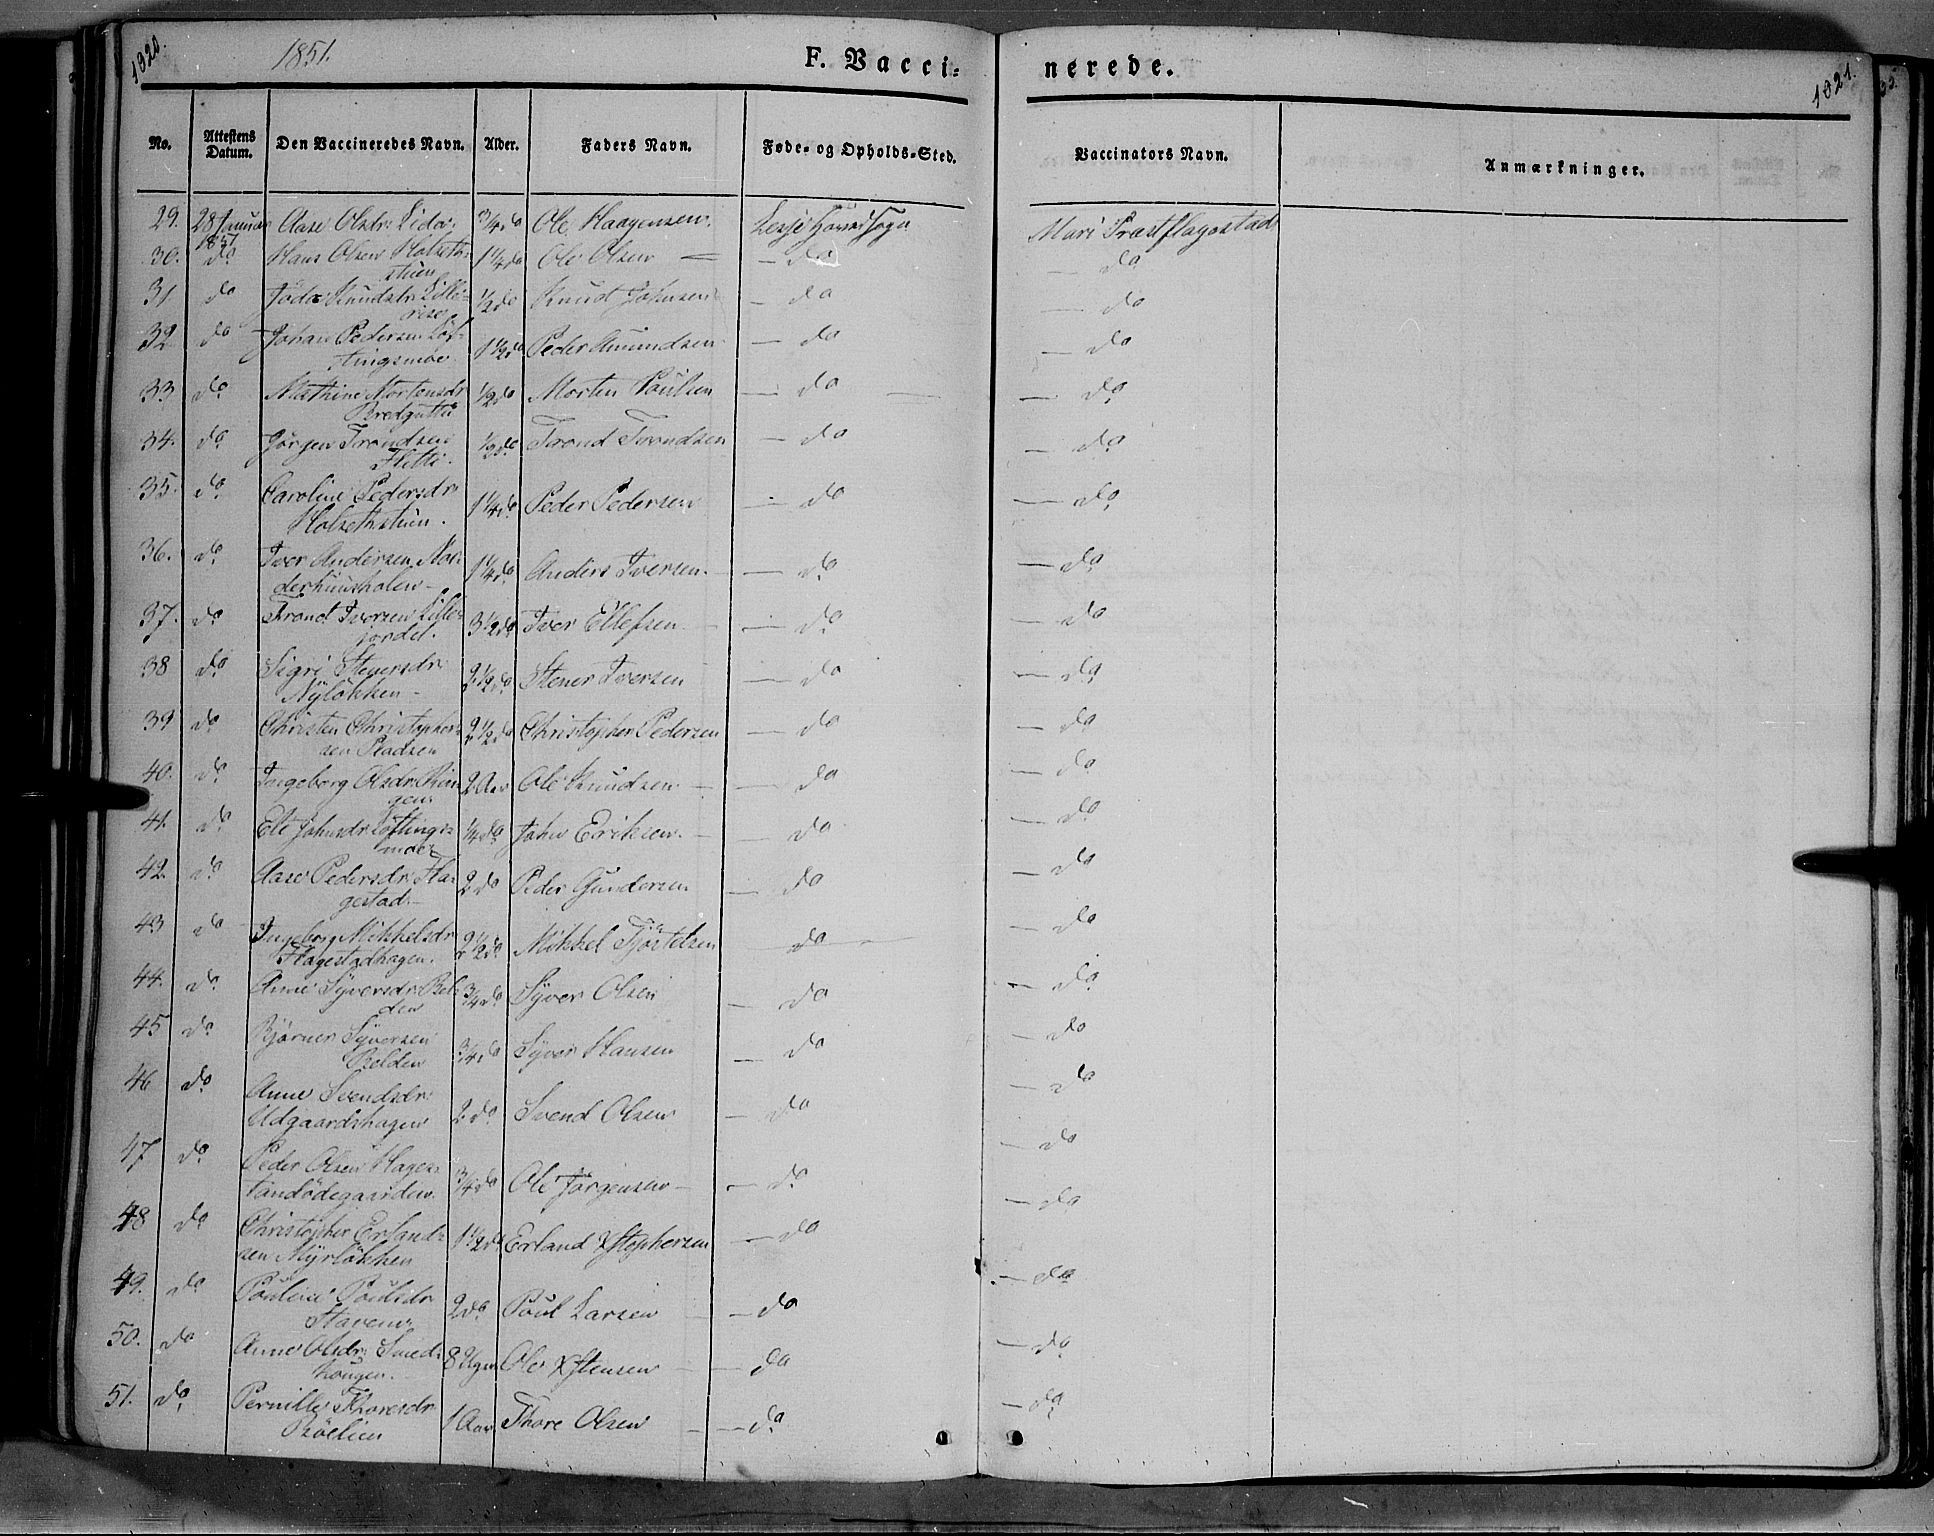 1020.
1851.
F. Vacci-
nerede.
1021.
No.
Attestens Datum.
Den Vaccineredes Navn.
Alder.
Faders Navn.
Føde- og Opholds-Sted.
Vaccinators Navn.
Anmærkninger.
29. 28 Januar 1851 Aase Olsdr: 3/4 do Ole Haagensen. Lesje Hovedsogn Mari Præstflagestad
30. do Hans Olsen Holseth-
stuen 1 1/4 do Ole Olsen — do — do
31. do Knudsdr: Lille-
1/2 do Knud Johnsen — do — do
32 do Johan Pedersen Løf-
tingsmoe 1 1/2 do Peder Amundsen — do — do
33 do Mathine Mortensdr
Bredgutte 1/2 do Morten Poulsen — do — do
34. do Jørgen Trondsen
Flitti. 1/2 do Trond Trondsen — do — do
35. do Caroline Pedersdr
Holsethstuen. 1 1/4 do Peder Pedersen — do — do
36. do Iver Andersen Nor-
derhuusholen — 1 1/4 do Anders Iversen. — do — do
37. do Trond Iversen Lille-
jordet. 3 1/2 do Iver Ellefsen — do — do
38 do Sigri Stenersdr
Nyløkken — 2 1/2 do Stener Iversen — do — do
39 do Christen Christopher-
sen 2 1/2 do Christopher Pedersen — do — do
40. do Ingeborg Olsdr:
2 Aar Ole Knudsen — do — do
41. do Eli Johnsdr Løftings-
moe 1/4 do John Eriksen. — do — do
42. do Aase Pedersdr: Fla-
gestad. — 2 do Peder Gundersen — do — do
43 do Ingeborg Mikkelsdr
Flagestadhagen. 2 1/2 do Mikkel Tjøstelsen do — do
44. do Anne Syversdr: Bel-
den 3/4 do Syver Olsen — do — do
45 do Bjørner Syversen
Belden 3/4 do Syver Hansen — do — do
46 do Anne Svendsdr:
Udgaardshagen 2 do Svend Olsen — do — do
47 do Peder Olsen Hages-
tandødegaarden. 3/4 do Ole Jørgensen — do — do
48 do Christopher Erland-
sen Myrløkken 1 1/2 do Erland Xstophersen — do — do
49. do Pouline Poulsdr
Staven 2 do Poul Larsen — do — do
50. do Anne Olsdr: Smed-
hougen. 8 Ugr Ole Xstensen — do — do
51. do Pernille Thoresdr
Bølien 1 Aar Thore Olsen — do — do